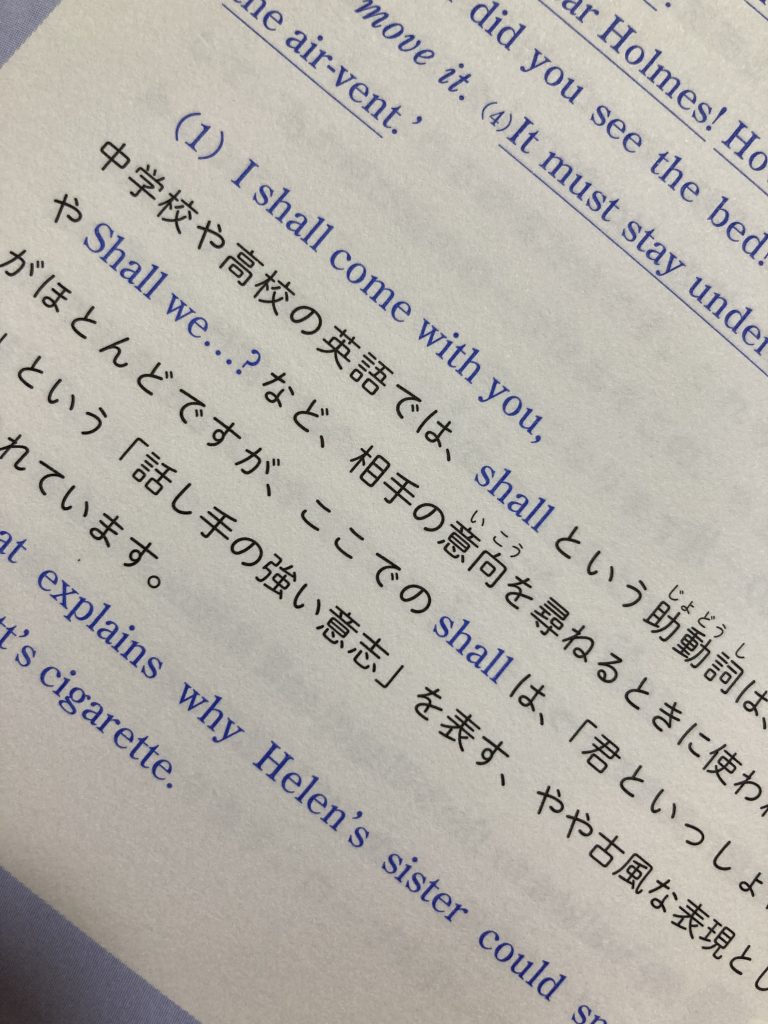 ar Holmes! Ho
did you see the bed!
move it. (4)It must stay under
he air-vent.’
(1) I shall come with you,
中学校や高校の英語では、shallという助動詞は、
じょどうし
や Shall we…? など、相手の意向を尋ねるときに使われ
いこう
がほとんどですが、ここでのshallは、「君といっしょ
」という「話し手の強い意志」を表す、やや古風な表現とし
れています。
at explains why Helen’s sister could
tt’s cigarette.